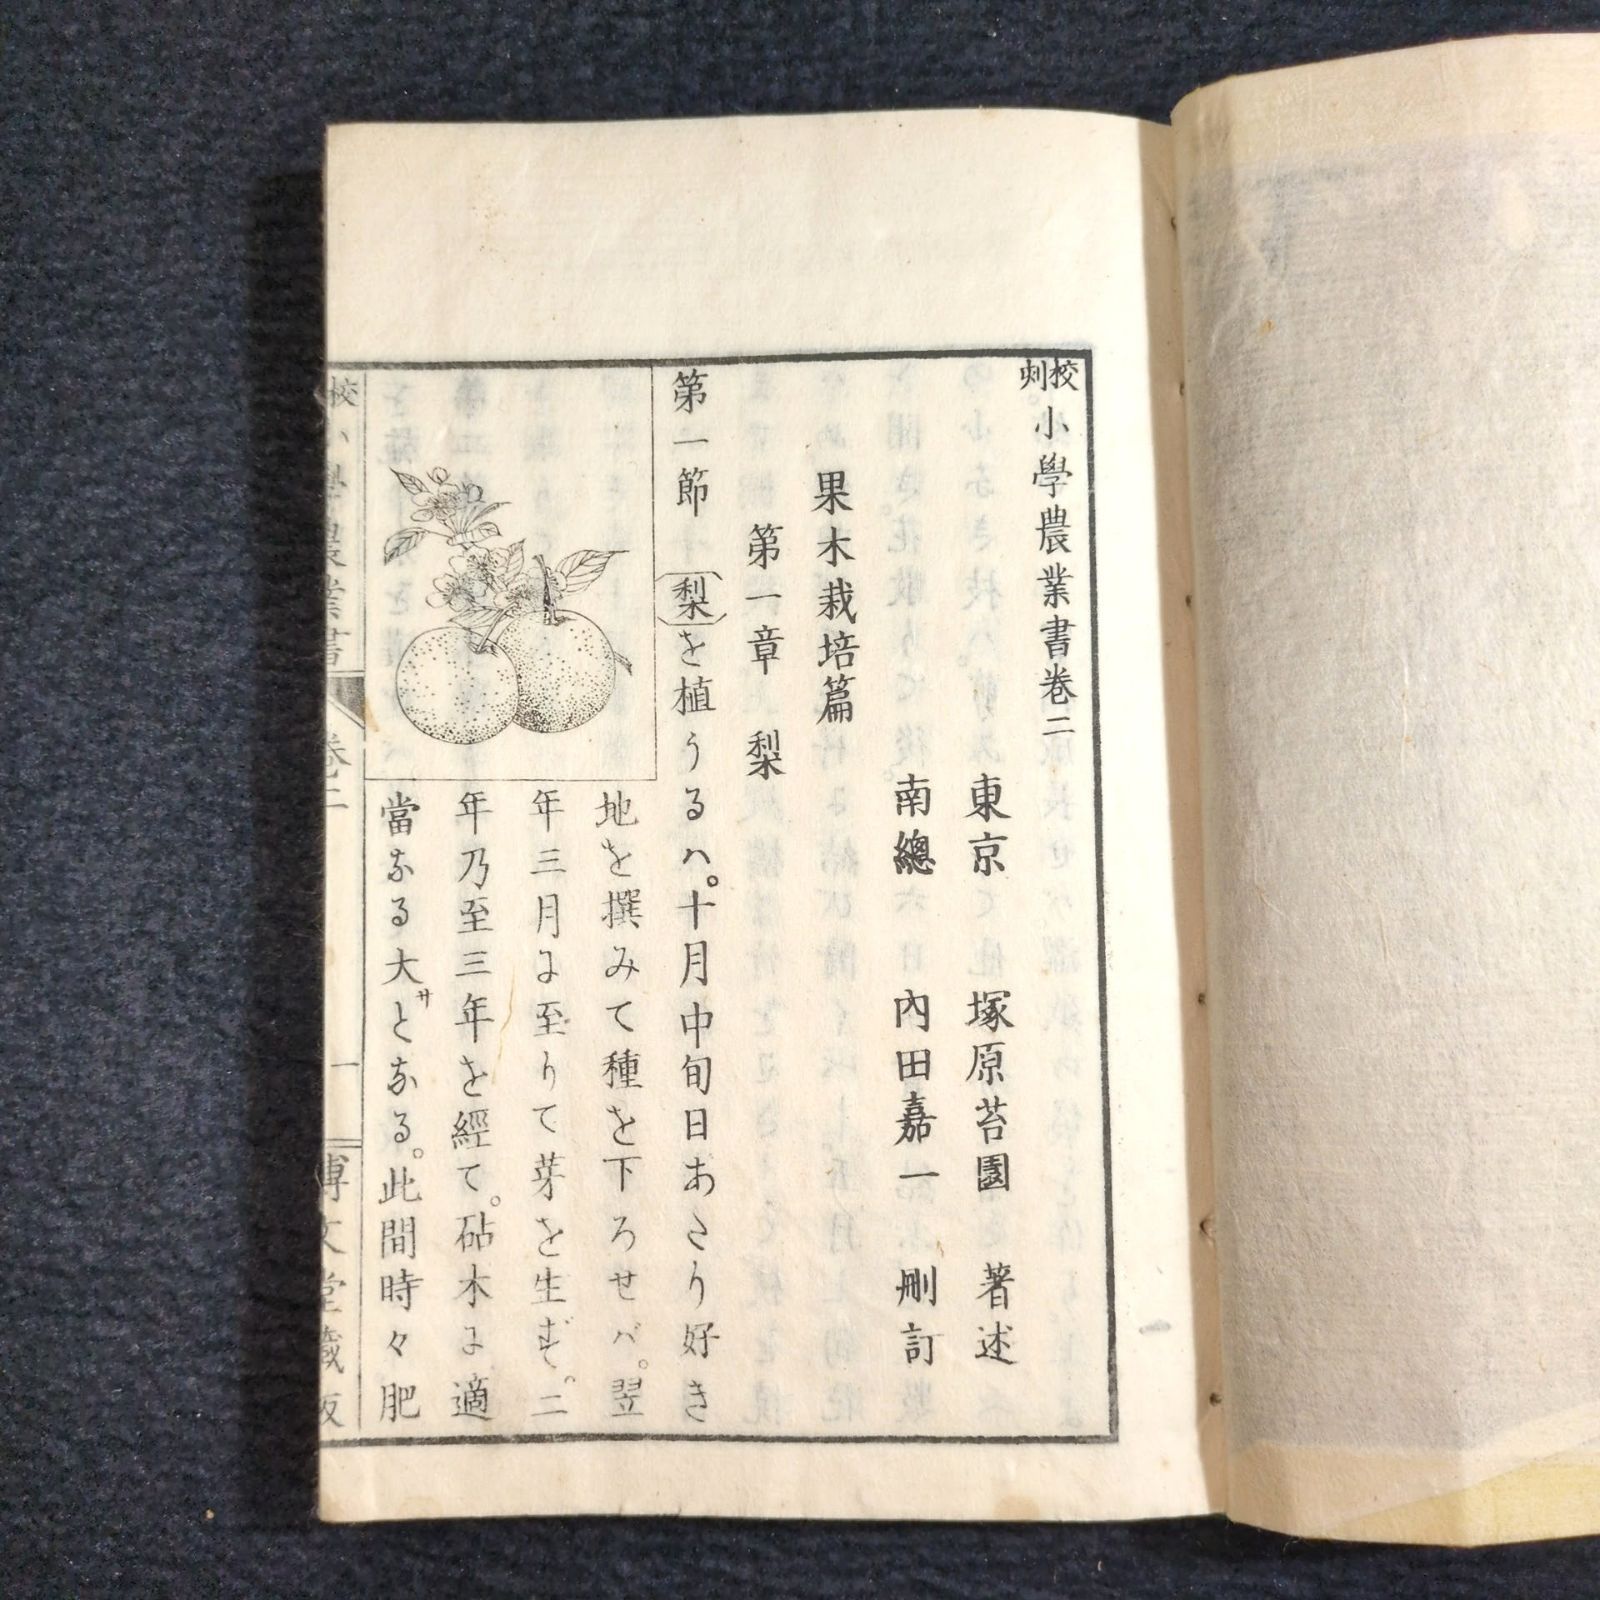 校刻小學農業書卷二
東京 塚原苔園 著述
南總 內田嘉一 刪訂
果木栽培篇
第一章 梨
第一節 〔梨〕を植うるハ。十月中旬日あたり好き
地を撰みて種を下ろせバ。翌
年三月に至りて芽を生ず。二
年乃至三年を經て。砧木に適
當なる大サとなる。此間時々肥
校 小學農業書 卷二 一 博文堂藏版